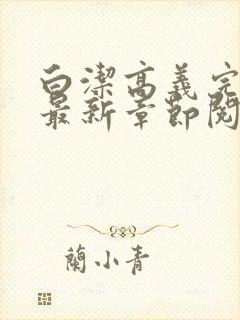 白潔高義完
最新章節閱
蘭小青